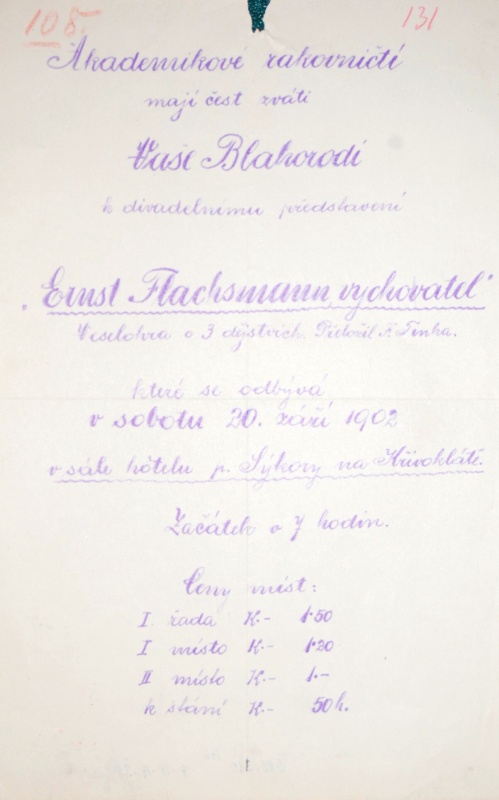 108.
131
Akademikové rakovničtí
mají čest zváti
Vaše Blahorodí
k divadelnímu představení
"Ernst Flachsmann, vychovatel"
Veselohra o 3 dějstvích. Přeložil F. Tinka.
které se odbývá
v sobotu 20. září 1902
v sále hôtelu p. Sýkory na Křivoklátě.
Začátek o 7 hodin.
Ceny míst:
I. řada K.- 1·50
I místo K.- 1·20
II místo K.- 1.-
k stání K.- 50h.